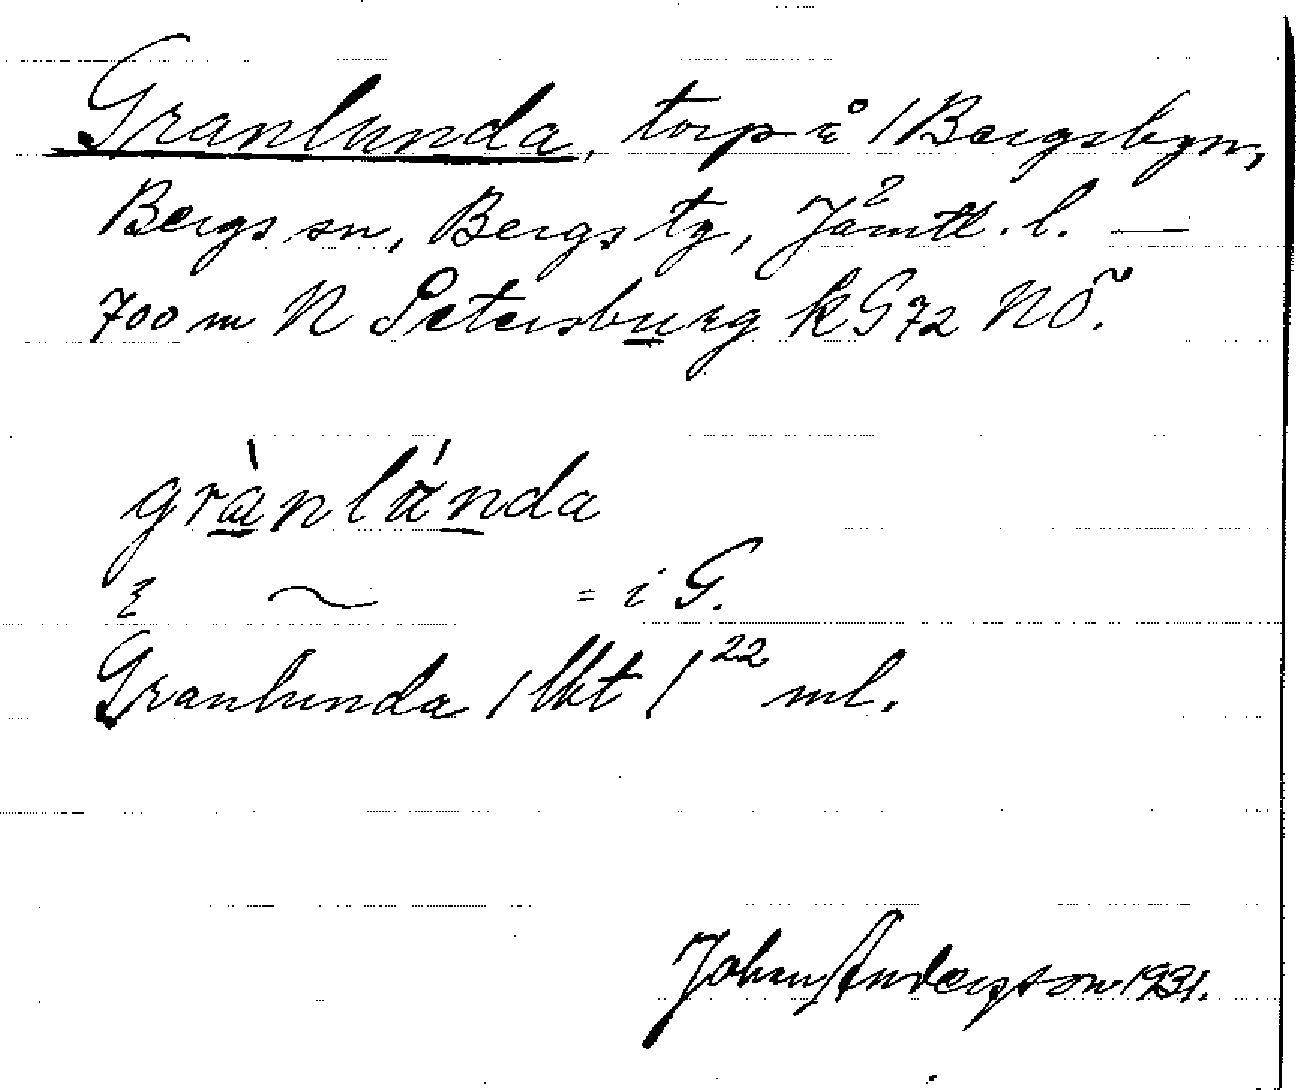 Granlunda, torp å 1 Bergsbyn,
Bergs sn, Bergs tg, Jämtl. l. —
700 m N Petersburg k G72 NÖ.
grànlánda
~ = i G.
Granlunda 1 lkt 1 22 ml.
Johan Anderson 1931.